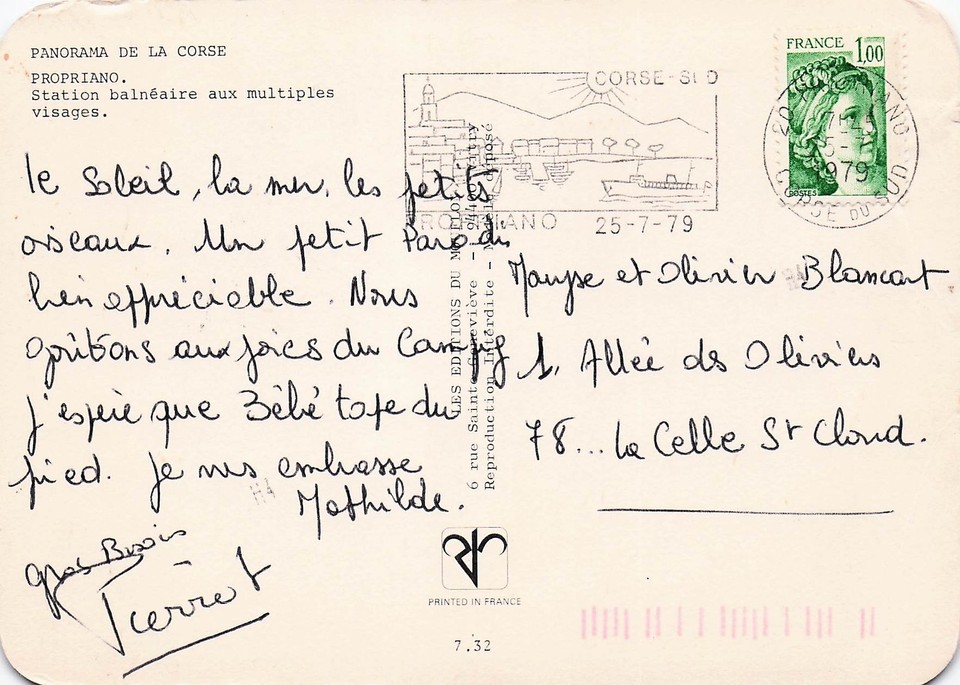 PANORAMA DE LA CORSE
PROPRIANO.
Station balnéaire aux multiples
visages.
le Soleil, la mer, les petits
oiseaux. Un petit Paradis
bien appréciable. Nous
goûtons aux joies du Camping
j'espère que Bébé tape du
pied. Je vous embrasse
Mathilde.
Gros Bisous
Pierrot
LES EDITIONS DU
6 rue Sainte Geneviève - 94400 Vitry
Reproduction Interdite - Modèle déposé
PRINTED IN FRANCE
7.32
CORSE-SUD
PROPRIANO 25-7-79
FRANCE 1,00
POSTES
1979
CORSE DU SUD
Maryse et Olivier Blancart
1. Allée des Oliviers
78... La Celle St Cloud.